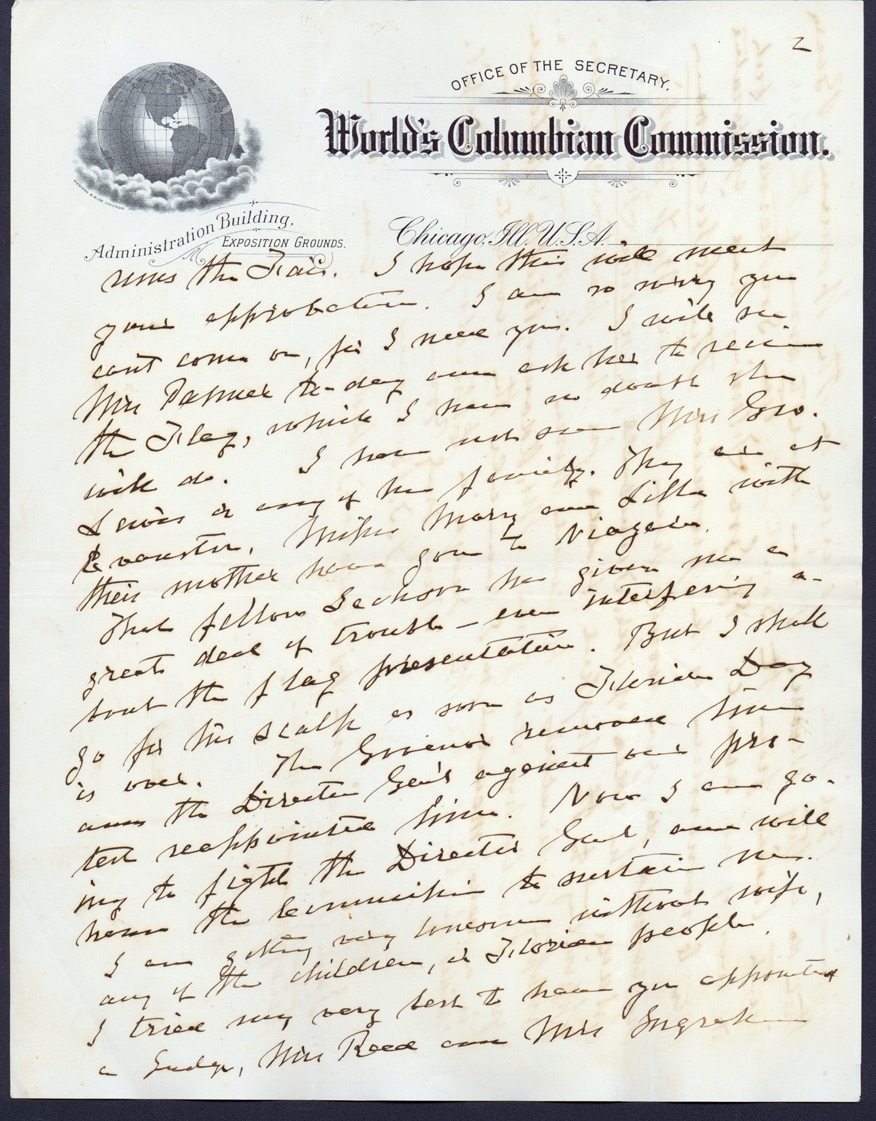 2
OFFICE OF THE SECRETARY.
World's Columbian Commission.
WESTERN B.N. CO. CHICAGO
Administration Building.
EXPOSITION GROUNDS.
Chicago, Ill. U.S.A.
the Fair. I hope this will meet
your approbation. I am so sorry you
can't come on, for I need you. I will see
Mrs Palmer to-day and ask her to receive
the Flag, which I have no doubt she
will do. I have not seen Mrs Geo.
Lewis or any of her family. They are at
Evanston. Misses Mary and Lilla with
their mother have gone to Niagara.
That fellow Jackson has given me a
great deal of trouble – even interfering a-
bout the flag presentation. But I shall
go for his scalp as soon as Florida Day
is over. The Governor removed him
and the Director Gen'l against our pro-
test reappointed him. Now I am go-
ing to fight the Director Genl, and will
have the Commission to sustain me.
I am getting very lonesome without wife,
any of the children, or Florida people.
I tried my very best to have you appointed
a Judge, Mrs Reed and Mrs Ingraham